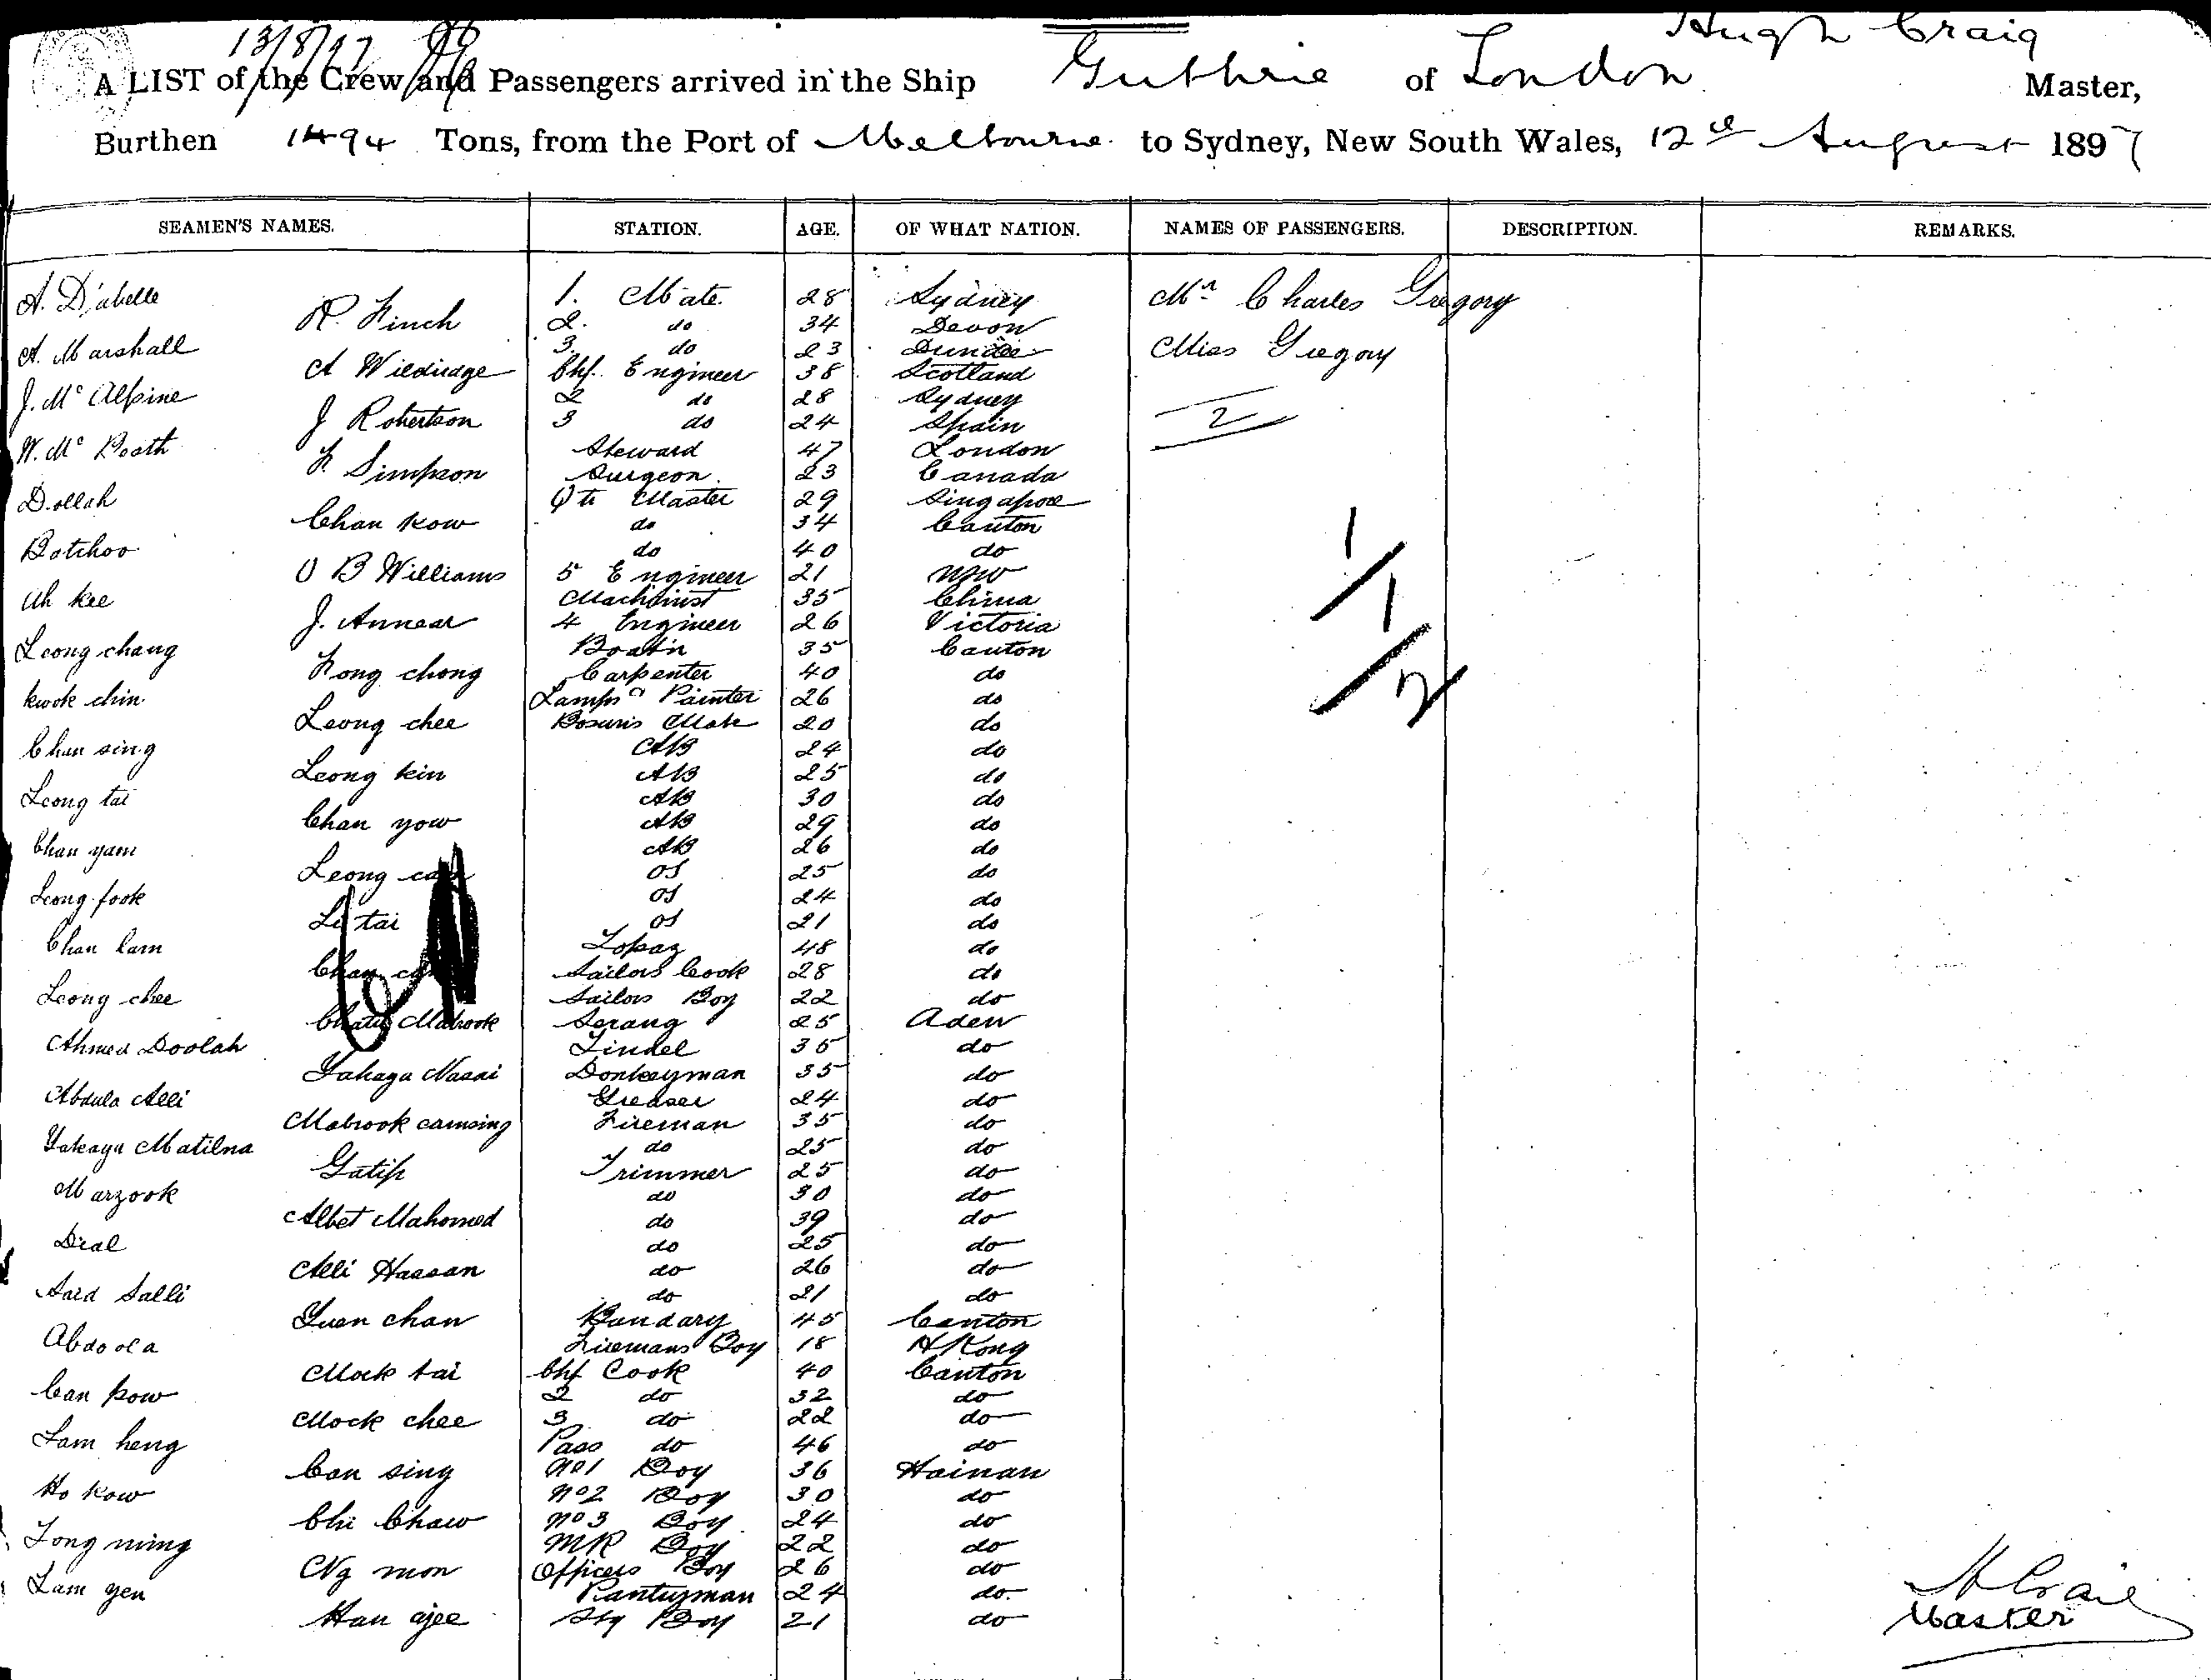 13/8/97
Hugh Craig
A LIST of the Crew and Passengers arrived in the Ship Guthrie of London Master,
Burthen 1494 Tons, from the Port of Melbourne to Sydney, New South Wales, 12th August 1897
SEAMEN'S NAMES. STATION. AGE. OF WHAT NATION. NAMES OF PASSENGERS. DESCRIPTION. REMARKS.
A. D'abelle 1. Mate 28 Sydney Mr Charles Gregory
R. Finch 2. do 34 Devon
A. Marshall 3. do 23 Dundee Miss Gregory
A Wildridge Chf. Engineer 38 Scotland
J. Mc Alpine 2 do 28 Sydney
J Robertson 3 do 24 Spain 2
W. Mc Beath Steward 47 London
F. Simpson Surgeon 23 Canada
Dollah Qtr Master 29 Singapore
Chan Kow do 34 Canton
Botchoo do 40 do
O B Williams 5 Engineer 21 NSW
Ah kee Machinist 35 China
J. Annear 4 Engineer 26 Victoria
Leong chang Boatn 35 Canton
Fong chong Carpenter 40 do
Kwok chin Lamps & Painter 26 do
Leong chee Bosuns Mate 20 do
Chan sing AB 24 do
Leong kin AB 25 do
Leong tai AB 30 do
Chan yow AB 29 do
Chan yam AB 26 do
Leong OS 25 do
Leong fook OS 24 do
Li tai OS 21 do
Chan lam Topaz 48 do
Chan Sailors Cook 28 do
Leong chee Sailors Boy 22 do
Mabrook Serang 25 Aden
Ahmed Doolah Tindel 36 do
Yahaya Nasai Donkeyman 35 do
Abdula Alli Greaser 24 do
Mabrook camsing Fireman 35 do
Yakaya Matilna do 25 do
Gatip Trimmer 25 do
Marzook do 30 do
Albet Mahomed do 39 do
Dial do 25 do
Alli Hassan do 26 do
Said Salli do 21 do
Yuen chan Bandary 45 Canton
Abdoola Firemans Boy 18 H Kong
Mock tai Chf Cook 40 Canton
Can kow 2 do 32 do
Mock chee 3 do 22 do
Lam heng Pass do 46 do
Can sing No 1 Boy 36 Hainan
Ho Kow No 2 Boy 30 do
Chi Chaw No 3 Boy 24 do
Tong ning MR Boy 22 do
Ng mon Officers Boy 26 do
Lam yen Pantryman 24 do
Han ajee Stg Boy 21 do
H Craig
Master